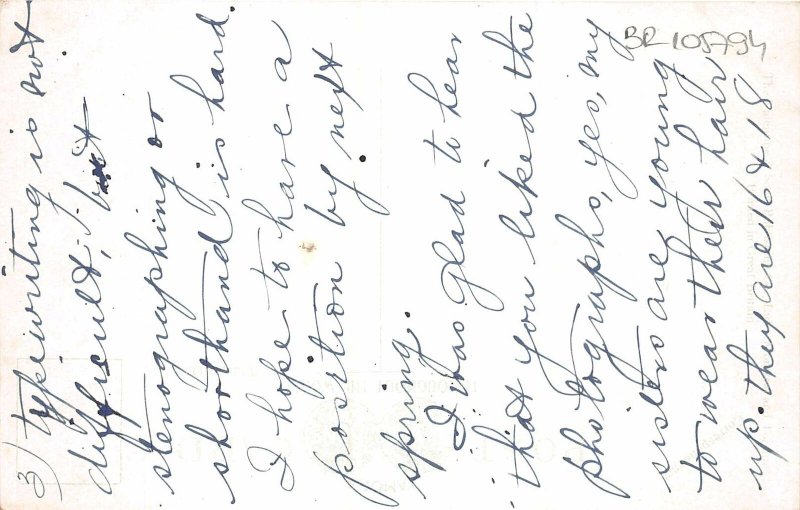 BR 105794
3) typewriting is not
difficult, but
stenographing or
shorthand is hard.
I hope to have a
position by next
spring.
I was glad to hear
that you liked the
photographs, yes, my
sisters are young
to wear their hair
up. they are 16 & 18